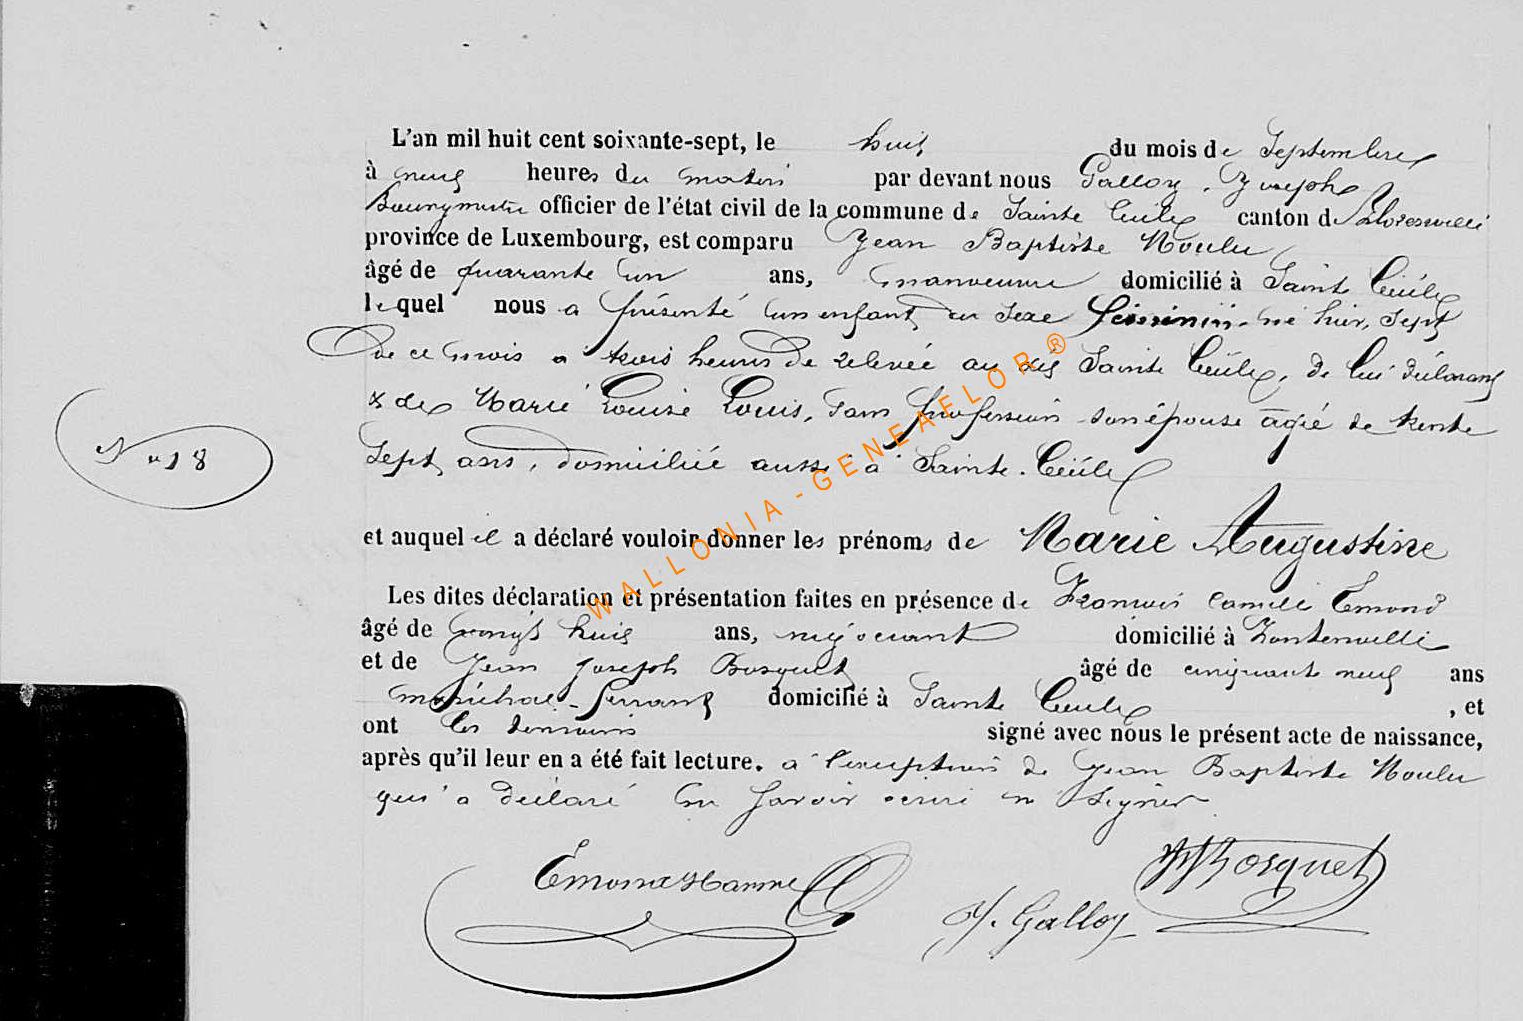 L'an mil huit cent soixante-sept, le huit du mois de Septembre
à neuf heures du matin par devant nous Galloy, Joseph
Bourgmestre officier de l'état civil de la commune de Sainte Cécile canton de Florenville
province de Luxembourg, est comparu Jean Baptiste Noulu
âgé de quarante un ans, manoeuvre domicilié à Sainte Cécile
lequel nous a présenté un enfant du sexe féminin né hier, sept
de ce mois à trois heures de relevée au dit Sainte Cécile, de lui déclarant
& de Marie Louise Louis, sans profession son épouse âgée de trente
sept ans, domiciliée aussi à Sainte-Cécile
N° 18
et auquel il a déclaré vouloir donner les prénoms de Marie Augustine
Les dites déclaration et présentation faites en présence de François Camille Emond
âgé de vingt huit ans, négociant domicilié à Fontenoille
et de Jean Joseph Bosquet âgé de cinquante neuf ans
maréchal-ferrant domicilié à Sainte Cécile, et
ont les témoins signé avec nous le présent acte de naissance,
après qu'il leur en a été fait lecture. à l'exception de Jean Baptiste Noulu
qui a déclaré ne savoir écrire ni signer
Emond
JJ Bosquet
J. Galloy
WALLONIA-GENEAELOR®